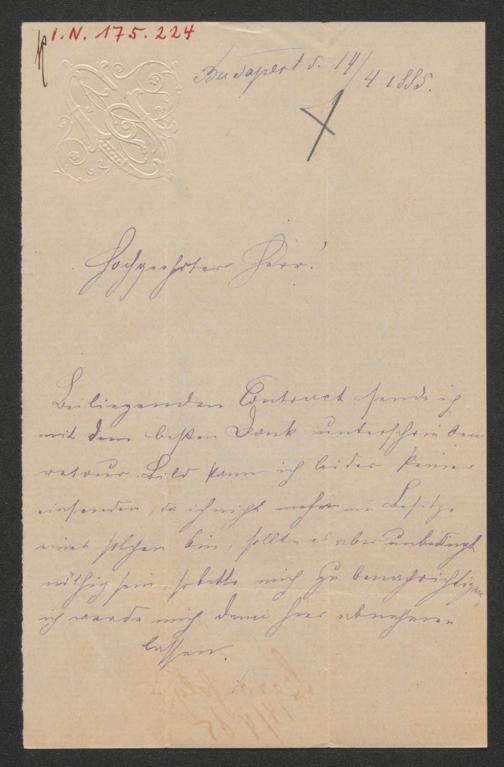 I.N. 175.224
Budapest d. 14/4 1885.
Hochgeehrter Herr!
Beiliegenden Contract sende ich
mit dem besten Dank unterschrieben
retour. Bild kann ich leider keines
einsenden, da ich nicht mehr im Besitze
eines solchen bin, sollte es aber unbedingt
nöthig sein, so bitte mich zu benachrichtigen,
ich werde mich dann hier abnehmen
lassen.